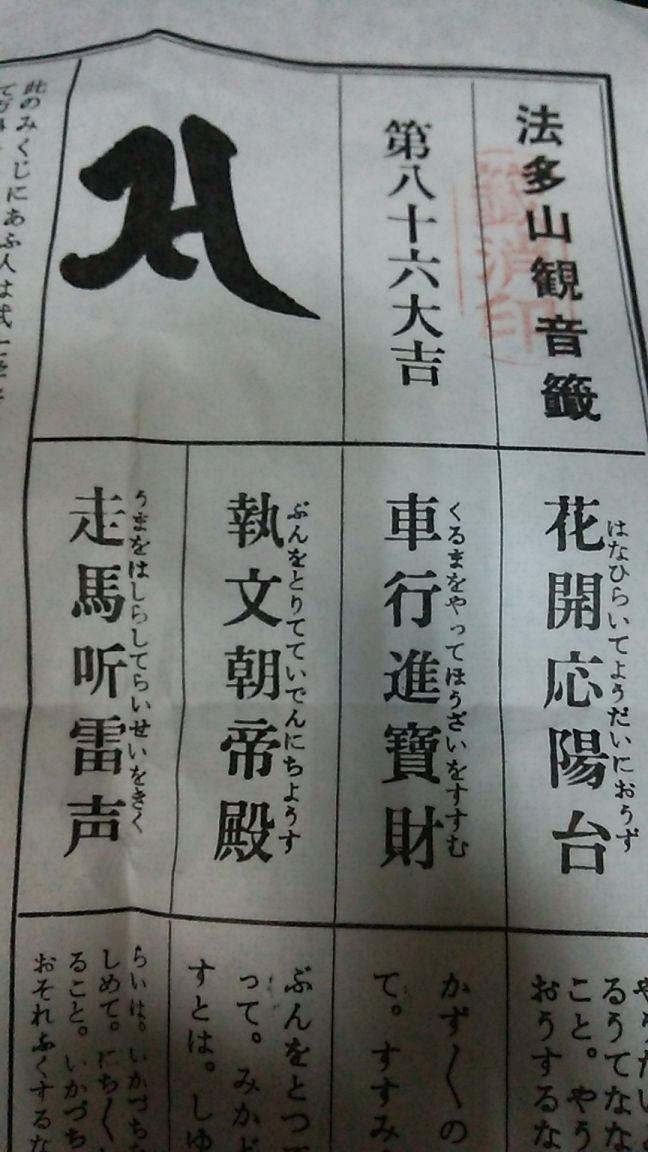 法多山観音籤
第八十六大吉
籤消印
花開応陽台
はなひらいてようだいにおうず
車行進寶財
くるまをやってほうざいをすすむ
執文朝帝殿
ぶんをとりてていでんにちようす
走馬听雷声
うまをはしらしてらいせいをきく
るうてなな
こと。やう
おうするな
かず〱の
て。すすみ
ぶんをとつて
って。みかど
すとは。しゆ
らいは。いかづち
しめて。にち〱
ること。いかづち
おそれふくするな
此のみくじにあふ人は